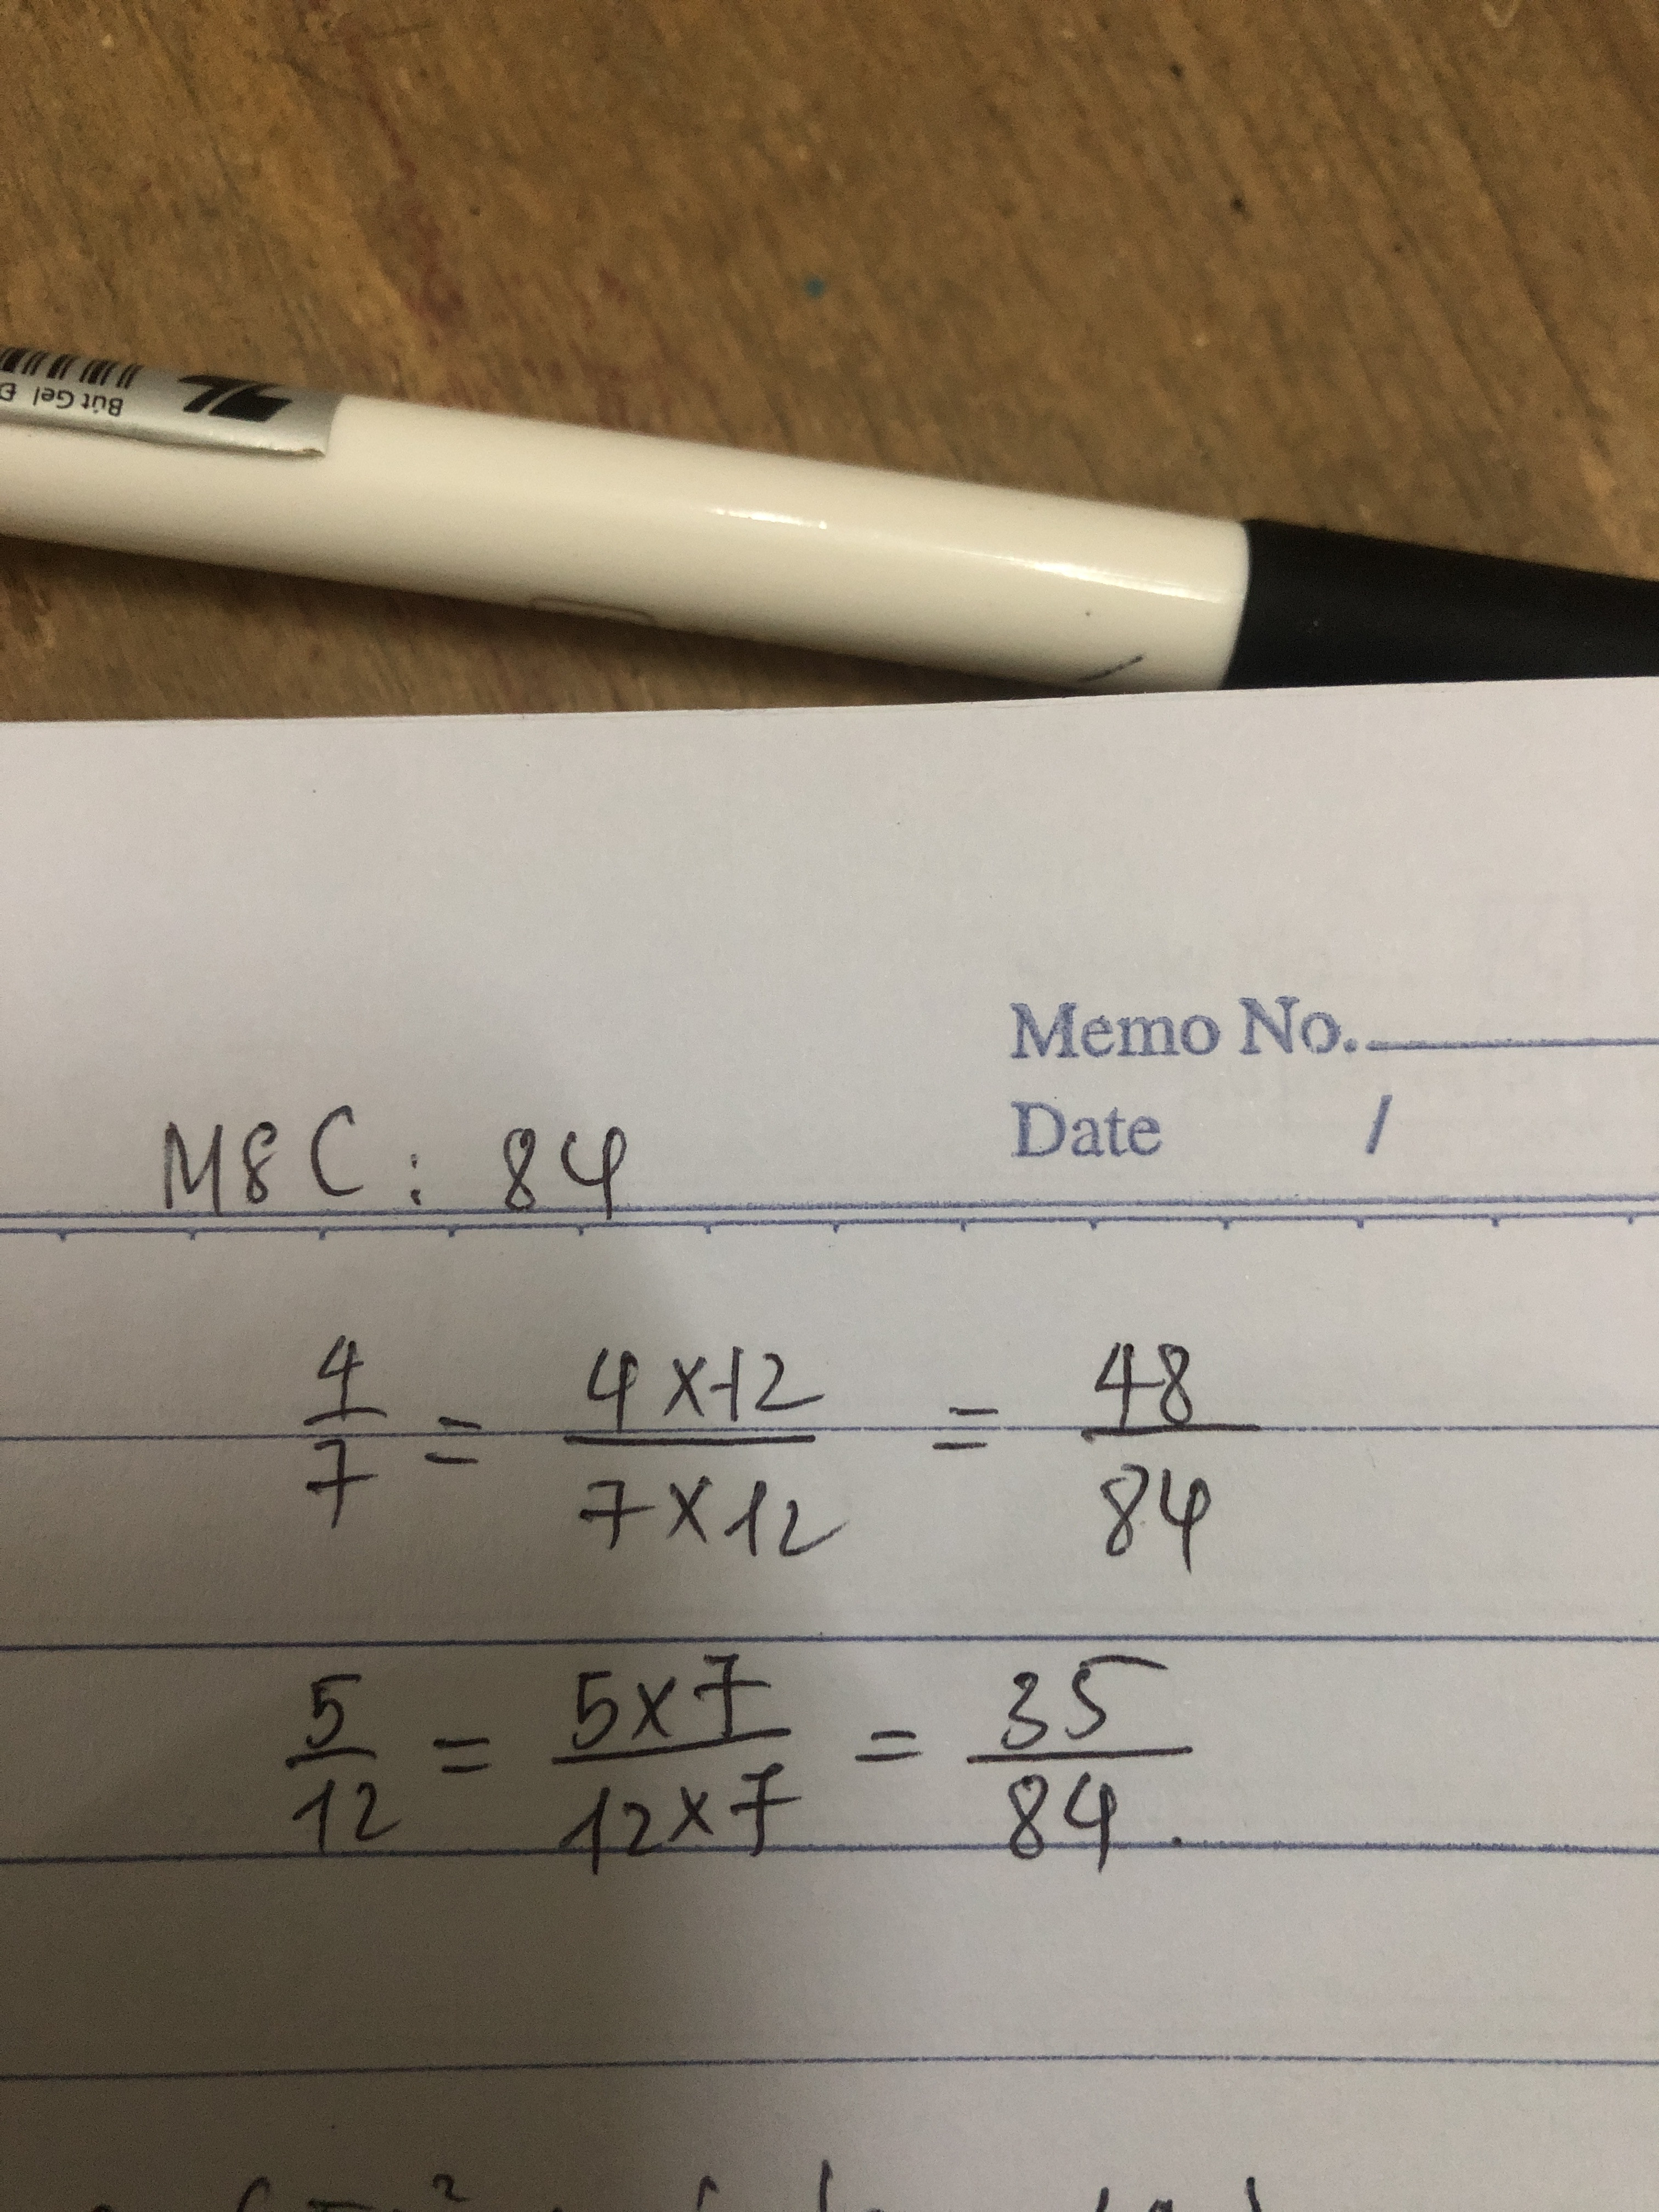 Bút Gel
TL
Memo No.
Date /
MSC: 84
4/7 = 4 x 12 / 7 x 12 = 48/84
5/12 = 5 x 7 / 12 x 7 = 35/84.